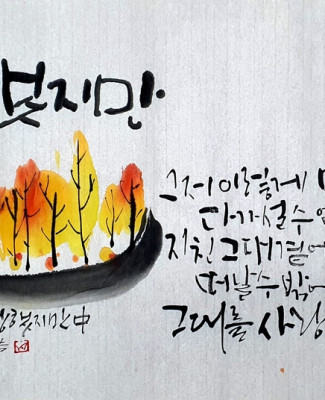 지만
그저 이렇게
다가설 수
지친 그대 곁에
떠날 수 밖에
그대를 사랑
지만 中